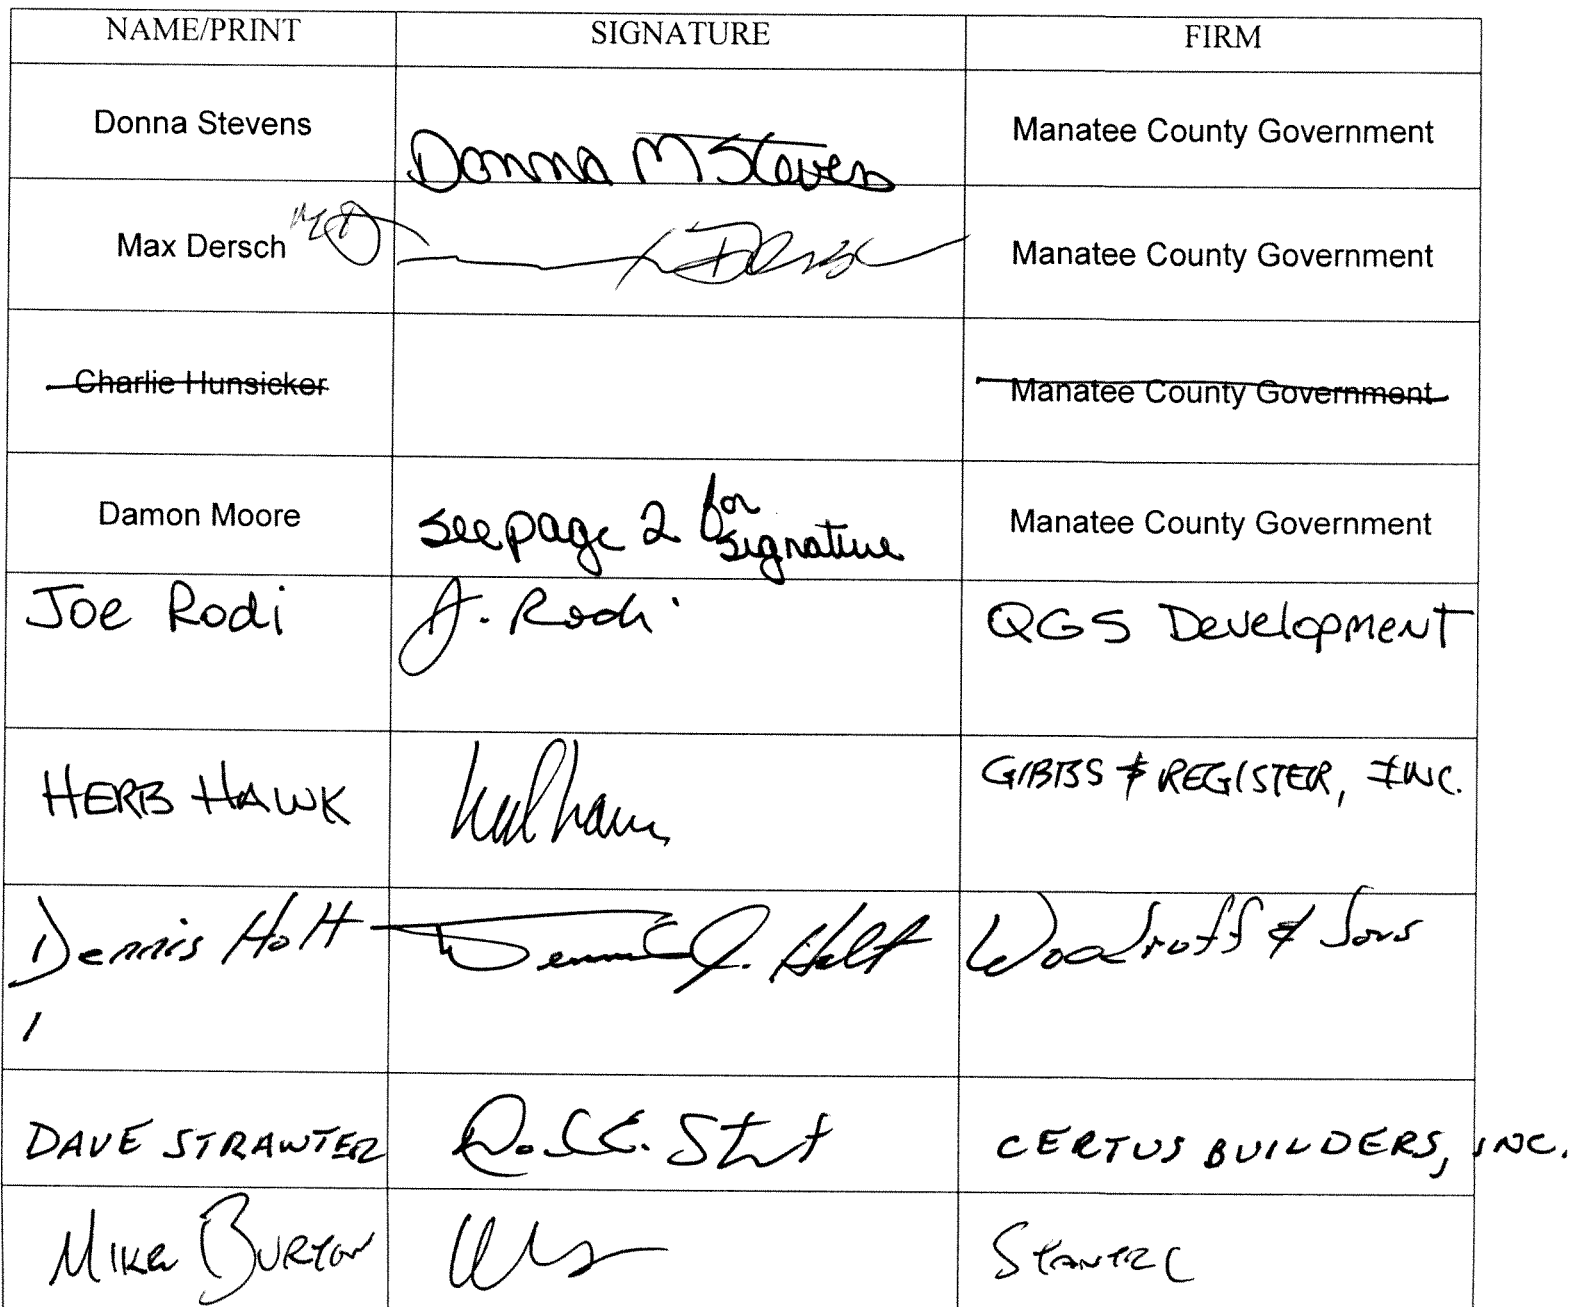 NAME/PRINT SIGNATURE FIRM
Donna Stevens Donna M Stevens Manatee County Government
Max Dersch MD Dersch Manatee County Government
Charlie Hunsicker Manatee County Government
Damon Moore See page 2 for signature Manatee County Government
Joe Rodi J. Rodi QGS Development
HERB HAWK GIBBS & REGISTER, INC.
Dennis Holt Dennis J. Holt Woodruff & Sons
DAVE STRAWTER CERTUS BUILDERS, INC.
MIKE BURTON STANTEC